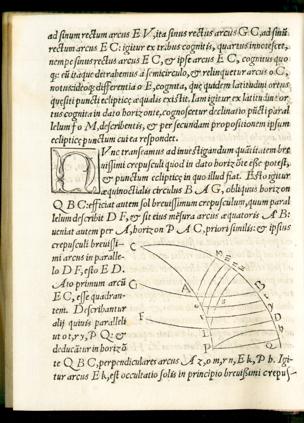 ad sinum rectum arcus E V, ita sinus rectus arcus G C, ad sinū
rectum arcus E C: igitur ex tribus cognitis, quartus innotescet,
nempe sinus rectus arcus E C, & ipse arcus E C, cognitus quo
q: cū itaque detrahemus à semicirculo, & relinquetur arcus o C,
notus: ideoq; differentia o E, cognita, quę quidem latitudini ortus
quæsiti puncti eclipticę æqualis existit. Iam igitur ex latitudine or
tus cognita in dato horizonte, cognoscetur declinatio pūcti paral
lelum ſ o M, describentis, & per secundam propositionem ipsum
eclipticę punctum cui ea respondet.
NVnc transeamus ad inuestigandum quātitatem bre
uissimi crepusculi quod in dato horizōte esse potest,
& punctum eclipticę in quo illud fiat. Esto igitur
æquinoctialis circulus B A G, obliquus horizon
Q B C: efficiat autem sol breuissimum crepusculum, quum paral
lelum describit D F, & sit eius mēsura arcus æquatoris A B:
ueniat autem per A, horizon P A C, priori similis: & ipsius
crepusculi breuissi-
mi arcus in paralle-
lo D F, esto E D.
Aio primum arcū
E C, esse quadran-
tem. Describantur
alij quiuis paralleli
ut o t, r y, P Q: &
deducātur in horizō
te Q B C, perpendiculares arcus A z, o m, r n, E k, P h. Igi
tur arcus E k, est occultatio solis in principio breuissimi crepus-
C
G
F
A
B
D
P
Q